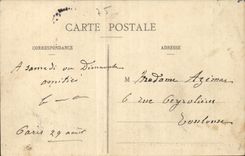 75
CARTE POSTALE
CORRESPONDANCE
ADRESSE
A samedi ou Dimanche
amitiés
Paris 29 août
M Madame Azémar
6 rue Peyrolières
Toulouse